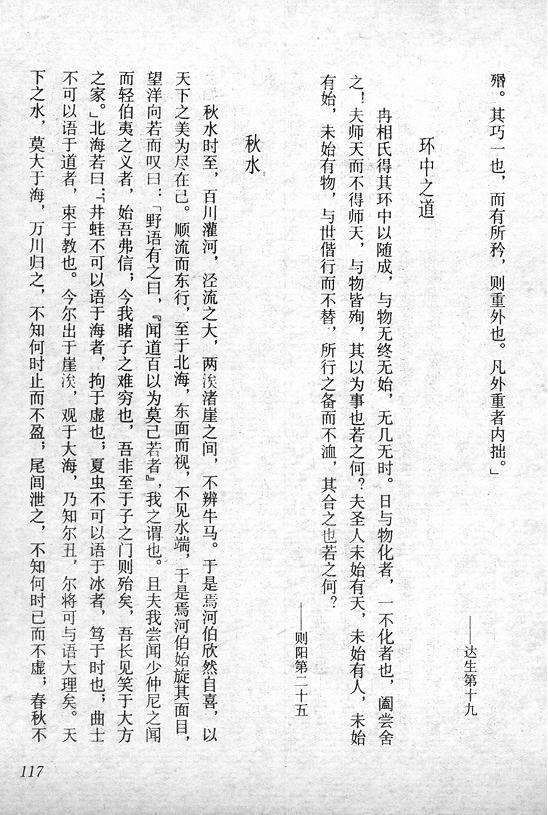 殙。其巧一也，而有所矜，则重外也。凡外重者内拙。」
——达生第十九
环中之道
冉相氏得其环中以随成，与物无终无始，无几无时。日与物化者，一不化者也，阖尝舍
之！夫师天而不得师天，与物皆殉，其以为事也若之何？夫圣人未始有天，未始有人，未始
有始，未始有物，与世偕行而不替，所行之备而不洫，其合之也若之何？
——则阳第二十五
秋水
秋水时至，百川灌河，泾流之大，两涘渚崖之间，不辨牛马。于是焉河伯欣然自喜，以
天下之美为尽在己。顺流而东行，至于北海，东面而视，不见水端，于是焉河伯始旋其面目，
望洋向若而叹曰：「野语有之曰，『闻道百以为莫己若者』，我之谓也。且夫我尝闻少仲尼之闻
而轻伯夷之义者，始吾弗信；今我睹子之难穷也，吾非至于子之门则殆矣，吾长见笑于大方
之家。」北海若曰：「井蛙不可以语于海者，拘于虚也；夏虫不可以语于冰者，笃于时也；曲士
不可以语于道者，束于教也。今尔出于崖涘，观于大海，乃知尔丑，尔将可与语大理矣。天
下之水，莫大于海，万川归之，不知何时止而不盈；尾闾泄之，不知何时已而不虚；春秋不
117